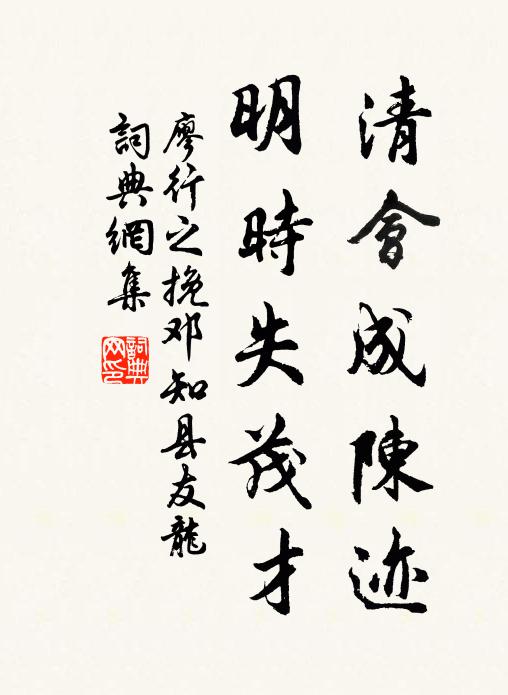 清會成陳迹
明時失茂才
廖行之挽邓知县友龍
詞典網集
詞典網印